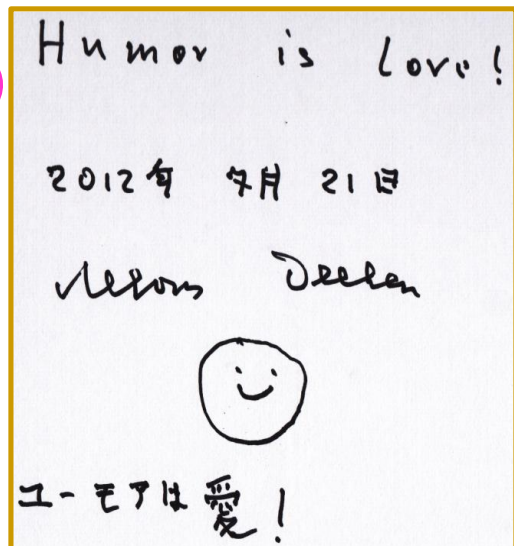 Humor is love!
2012年 7月 21日
Alfons Deeken
ユーモアは愛!